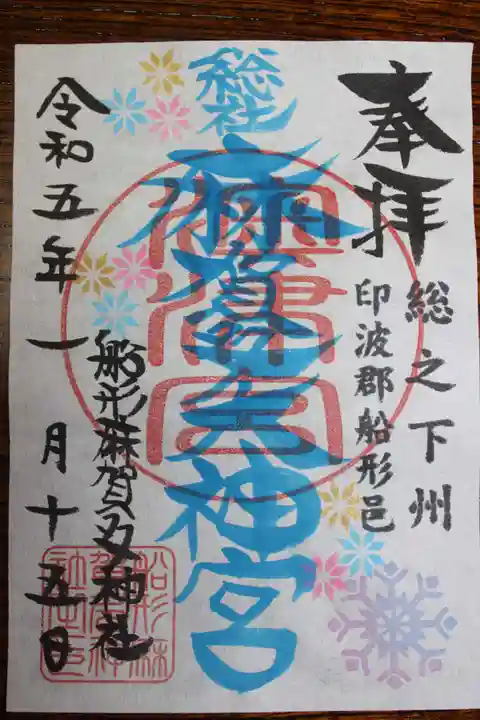 奉拝
総之下州
印波郡船形邑
総社
麻賀多神宮
船形麻賀多神社
令和五年一月十五日